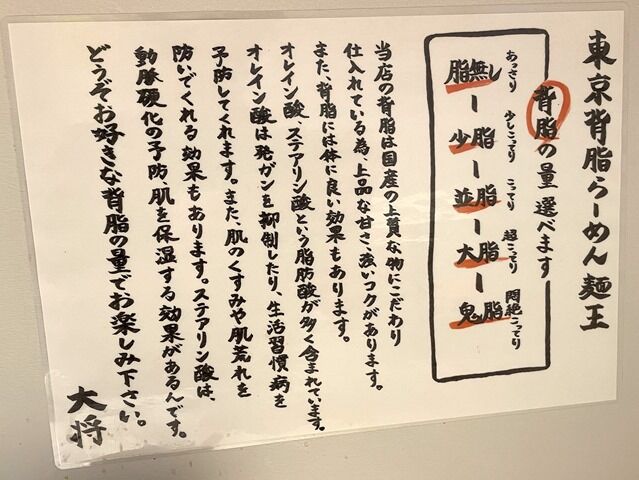 東京背脂らーめん麺王
背脂の量選べます
あっさり 少しこってり こってり 超こってり 悶絶こってり
脂無し ー 少脂 ー 並脂 ー 大脂 ー 鬼脂
当店の背脂は国産の上質な物にこだわり
仕入れている為、上品な甘さ、強いコクがあります。
また、背脂には体に良い効果もあります。
オレイン酸、ステアリン酸という脂肪酸が多く含まれています。
オレイン酸は発ガンを抑制したり、生活習慣病を
予防してくれます。また、肌のくすみや肌荒れを
防いでくれる効果もあります。ステアリン酸は、
動脈硬化の予防、肌を保湿する効果があるんです。
どうぞお好きな背脂の量でお楽しみ下さい。
大将